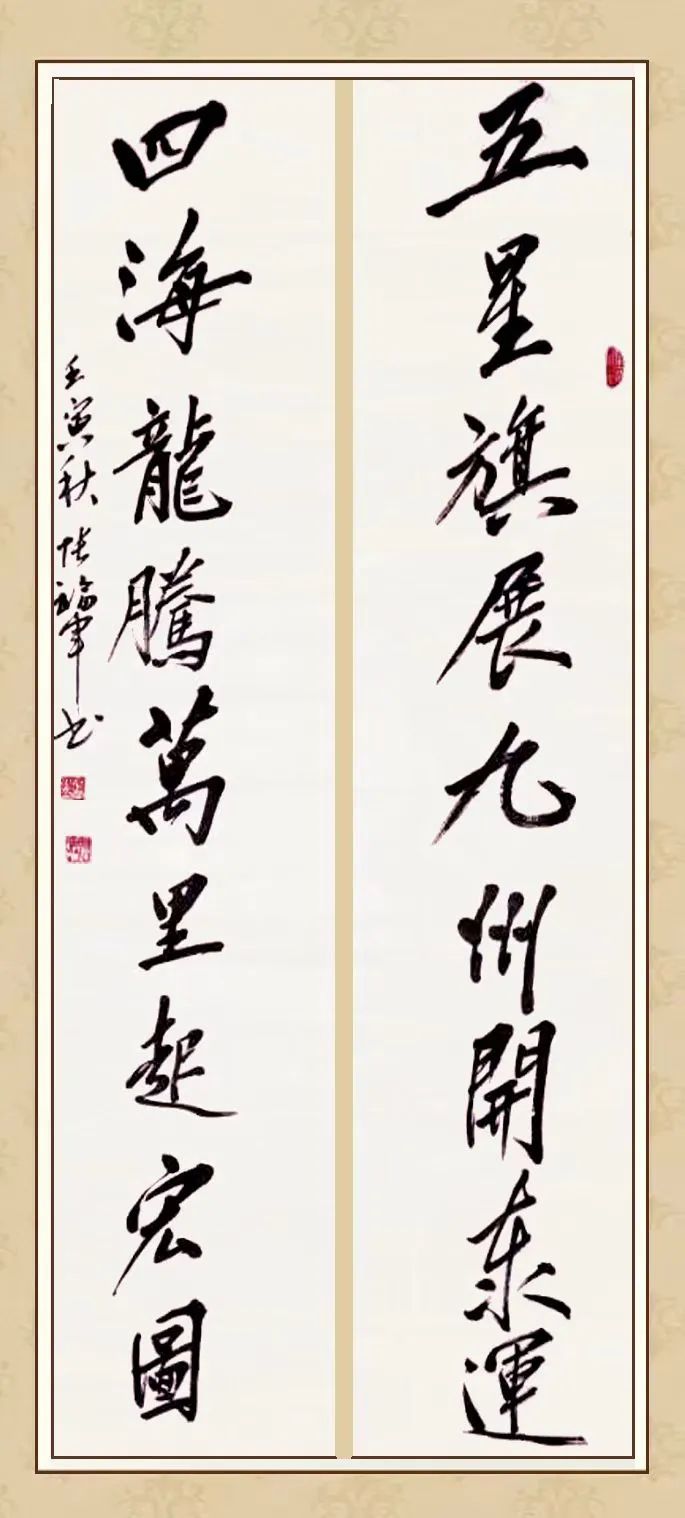 五星旗展九州開泰運
四海龍騰萬里起宏圖
壬寅秋 張福軍书